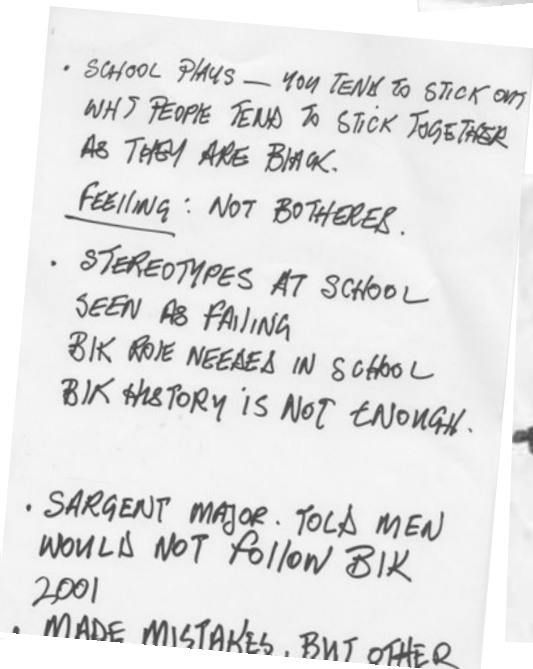 • SCHOOL PLAYS — YOU TEND TO STICK OUT
WHT PEOPLE TEND TO STICK TOGETHER
AS THEY ARE BLACK.
FEELING: NOT BOTHERED.
• STEREOTYPES AT SCHOOL
SEEN AS FAILING
BLK ROLE NEEDED IN SCHOOL
BLK HISTORY IS NOT ENOUGH.
• SARGENT MAJOR. TOLD MEN
WOULD NOT FOLLOW BLK
2001
• MADE MISTAKES, BUT OTHER